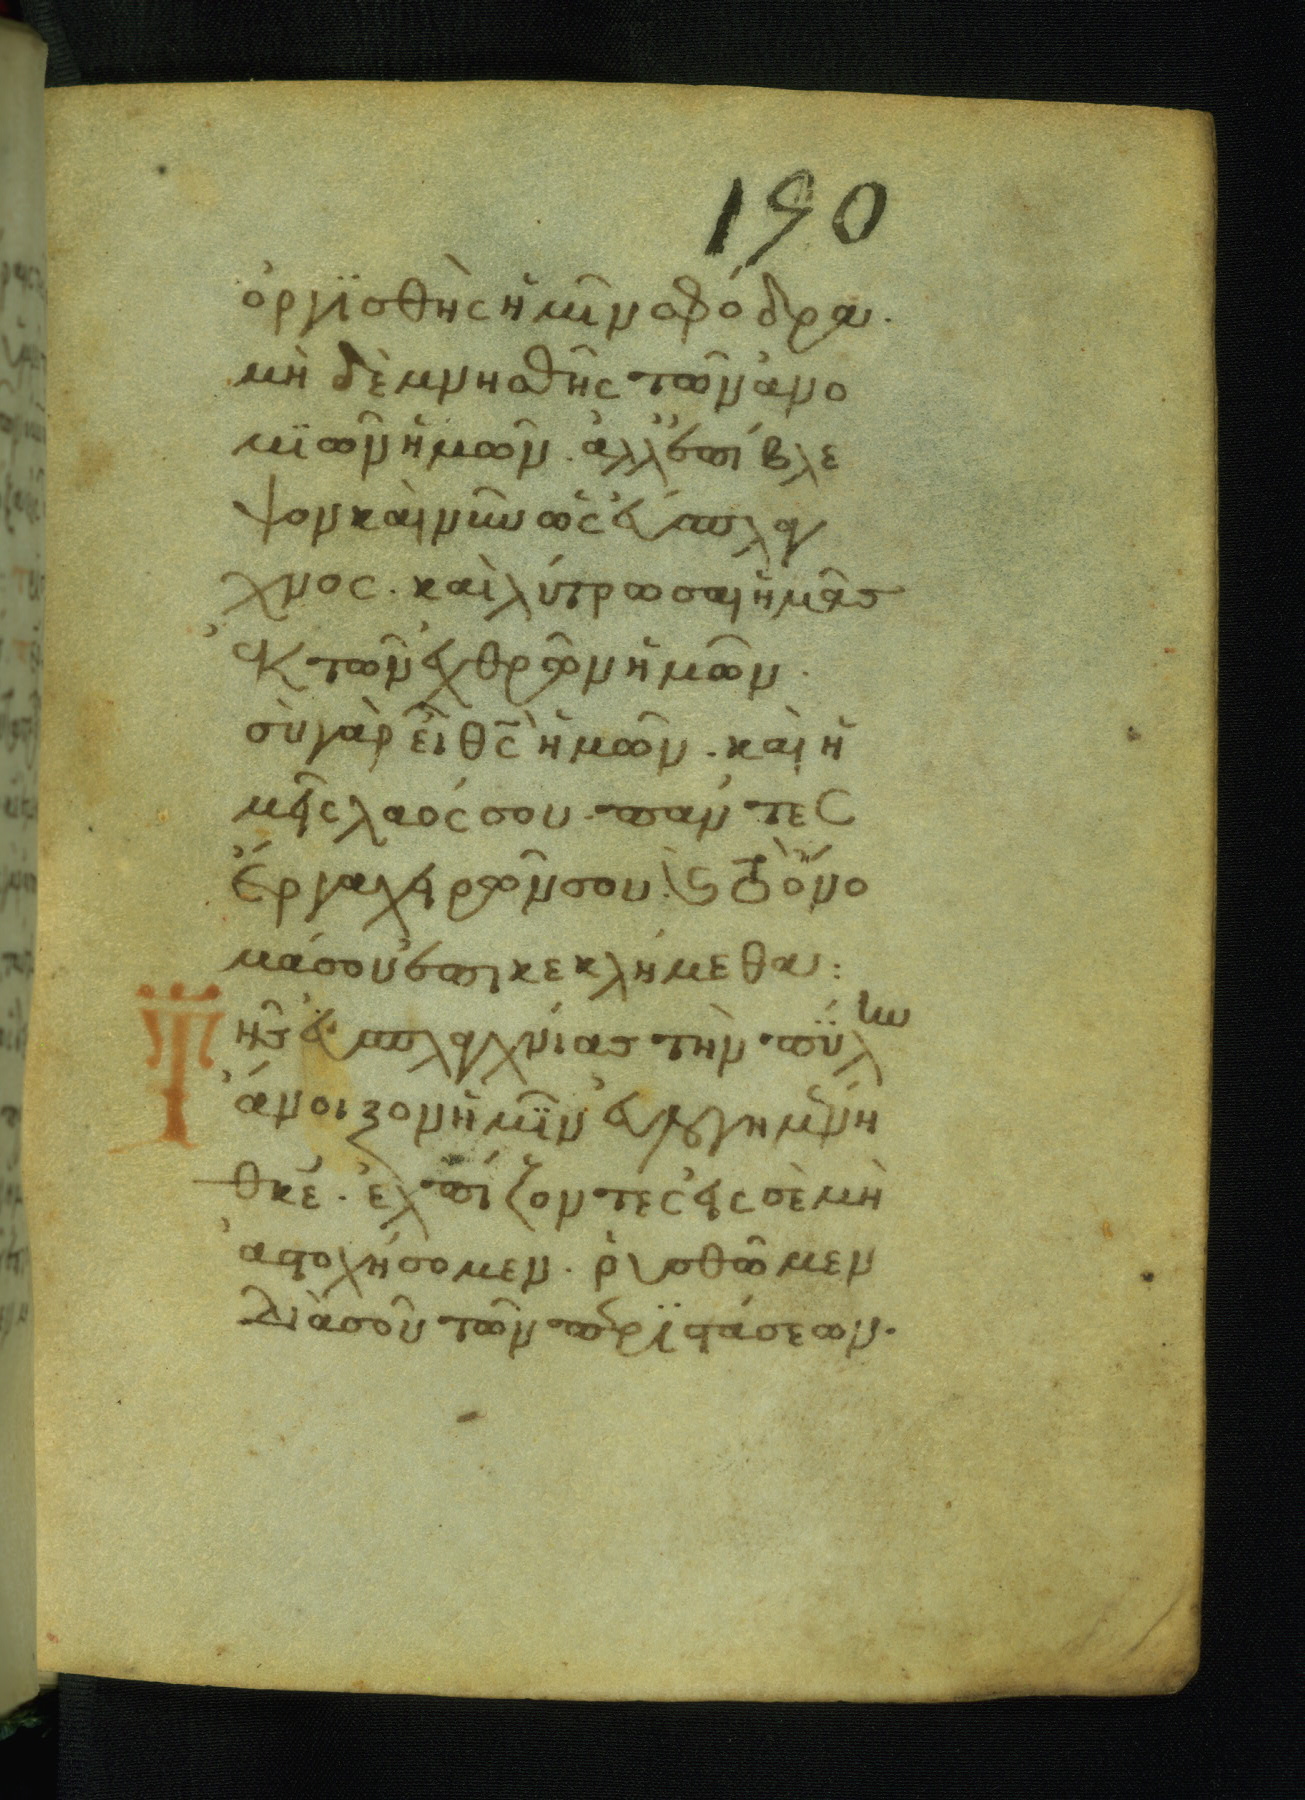 190
ὀργϊσθῆς ἡμῖν σφόδρα.
μὴ δὲ μνησθῆς τῶν ἀνο
μϊῶν ἡμῶν. ἀλλ' ἐπίβλε
ψον καὶ νῦν ὡς εὔσπλαγ
χνος. καὶ λύτρωσαι ἡμᾶς
ἐκ τῶν ἐχθρῶν ἡμῶν.
σὺ γὰρ εἶ θς̅ ἡμῶν. καὶ ἡ
μεῖς λαός σου. πάντες
ἔργα χειρῶν σου. ϗ τὸ ὄνο
μά σου ἐπικεκλήμεθα:
Τῆς εὐσπλαγχνίας τὴν πύλ
ην
ἄνοιξον ἡμῖν εὐλογημένη
θκε̅. ἐλπίζοντες εἰς σὲ μὴ
ἀστοχήσομεν. ῥυσθῶμεν
διὰ σοῦ τῶν περϊστάσεων.